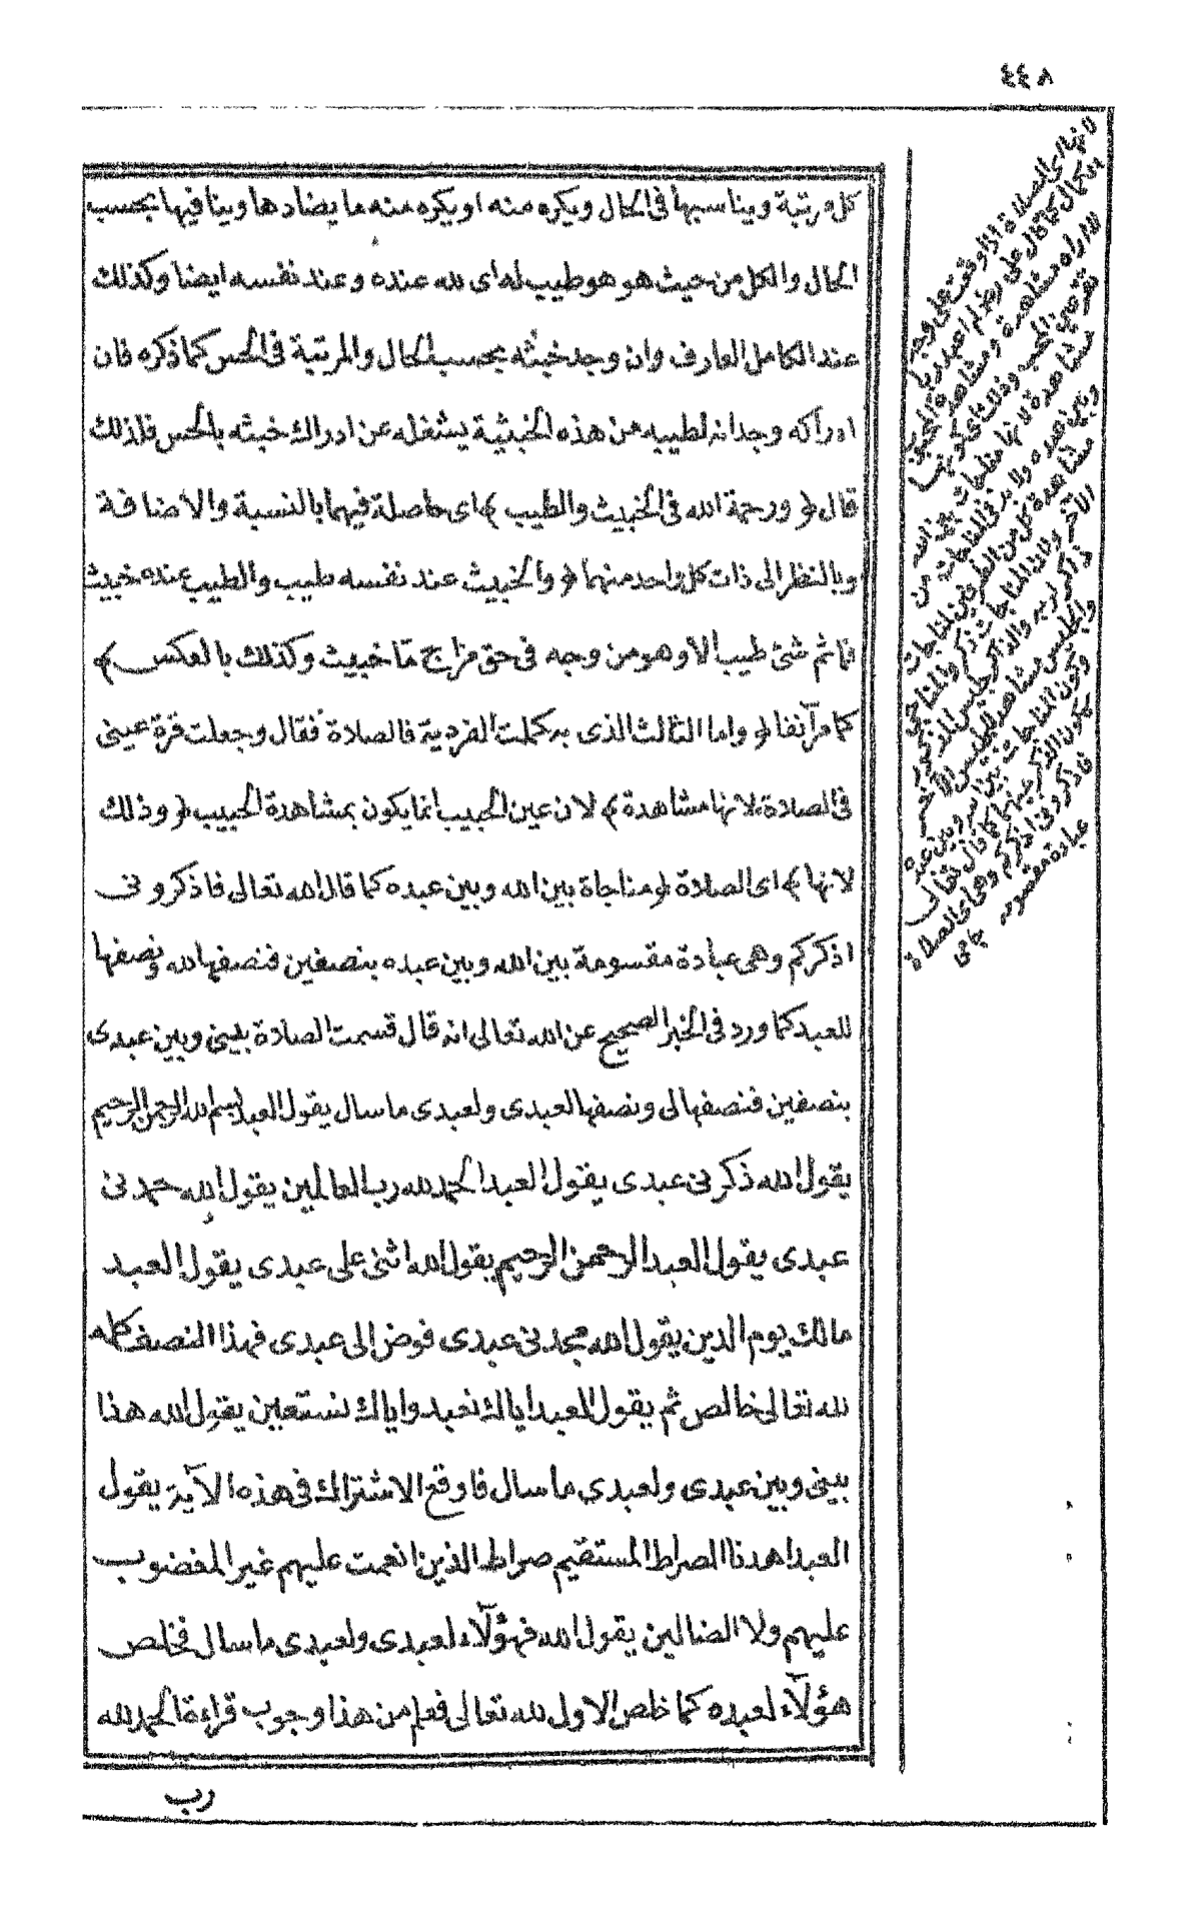 ٤٤٨
كل مرتبة ويناسبها فى الحال ويكره منه او يكره منه ما يضادها وينافيها بحسب
الحال والكل من حيث هو هو طيب له اى لله عنده وعند نفسه ايضا وكذلك
عند الكامل العارف وان وجد خبثه بحسب الحال والمرتبة فى الحس كما ذكره فان
ادراكه وجدانه لطيبه من هذه الحيثية يشغله عن ادراك خبثه بالحس فلذلك
قال ﴿ ورحمة الله فى الخبيث والطيب ﴾ اى حاصلة فيهما بالنسبة والاضافة
وبالنظر الى ذات كل واحد منهما ﴿ والخبيث عند نفسه طيب والطيب عنده خبيث
فما ثم شئ طيب الا وهو من وجه فى حق مزاج ما خبيث وكذلك بالعكس ﴾
كما مر آنفا ﴿ واما الثالث الذى به كملت الفردية فالصلاة فقال وجعلت قرة عينى
فى الصلاة لانها مشاهدة ﴾ لان عين الحبيب انما يكون بمشاهدة الحبيب ﴿ وذلك
لانها ﴾ اى الصلاة ﴿ مناجاة بين الله وبين عبده كما قال الله تعالى فاذكرونى
اذكركم وهى عبادة مقسومة بين الله وبين عبده بنصفين فنصفها لله ونصفها
للعبد كما ورد فى الخبر الصحيح عن الله تعالى انه قال قسمت الصلاة بينى وبين عبدى
بنصفين فنصفها لى ونصفها لعبدى ولعبدى ما سال يقول العبد بسم الله الرحمن الرحيم
يقول الله ذكرنى عبدى يقول العبد الحمد لله رب العالمين يقول الله حمدنى
عبدى يقول العبد الرحمن الرحيم يقول الله اثنى على عبدى يقول العبد
مالك يوم الدين يقول الله مجدنى عبدى فوض الى عبدى فهذا النصف كله
لله تعالى خالص ثم يقول العبد اياك نعبد واياك نستعين يقول الله هذا
بينى وبين عبدى ولعبدى ما سال فاوقع الاشتراك فى هذه الآية يقول
العبد اهدنا الصراط المستقيم صراط الذين انعمت عليهم غير المغضوب
عليهم ولا الضالين يقول الله فهؤلاء لعبدى ولعبدى ما سال فخلص
هؤلاء لعبده كما خلص الاول لله تعالى فعلم من هذا وجوب قراءة الحمد لله
رب
لانها اى الصلاة اذا وقعت على وجه
الكمال كما قال على رض لم اعبد ربا
لم اره مشاهدة ومشاهدة المحبوب
تقر عين المحب وذلك اى كونها
مشاهدة لانها مناجات بين الله
وبين عبده ولا بد فى المناجات من
مشاهدة كل من الطرفين لمناجات
الآخر ولان المناجات ذكر والمناجى
ذاكر لربه والذاكر جليس المذكور
والجليس مشاهد للجليس الآخر
وكون المناجات بين الله وبين عبده
يكون الذكر بينهما كما قال تعالى
فاذكرونى اذكركم وهى اى الصلاة
عبادة مقسومة جامى